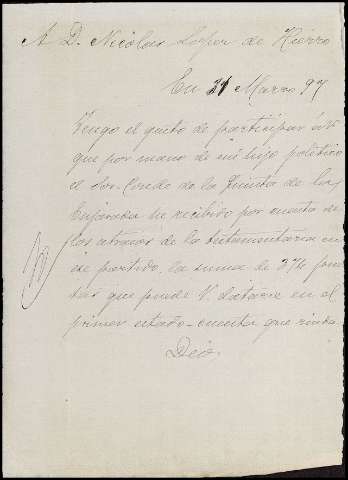 A D. Nicolas Lopez de Hierro
En 21 Marzo 97
Tengo el gusto de participar á V.
que por mano de mi hijo político
el Sor. Conde de la Quinta de la
Enjarada he recibido por cuenta de
los atrasos de la testamentaria en
ese partido, la suma de 376 pese
tas que puede V. datarse en el
primer estado-cuenta que rinda.
Dios